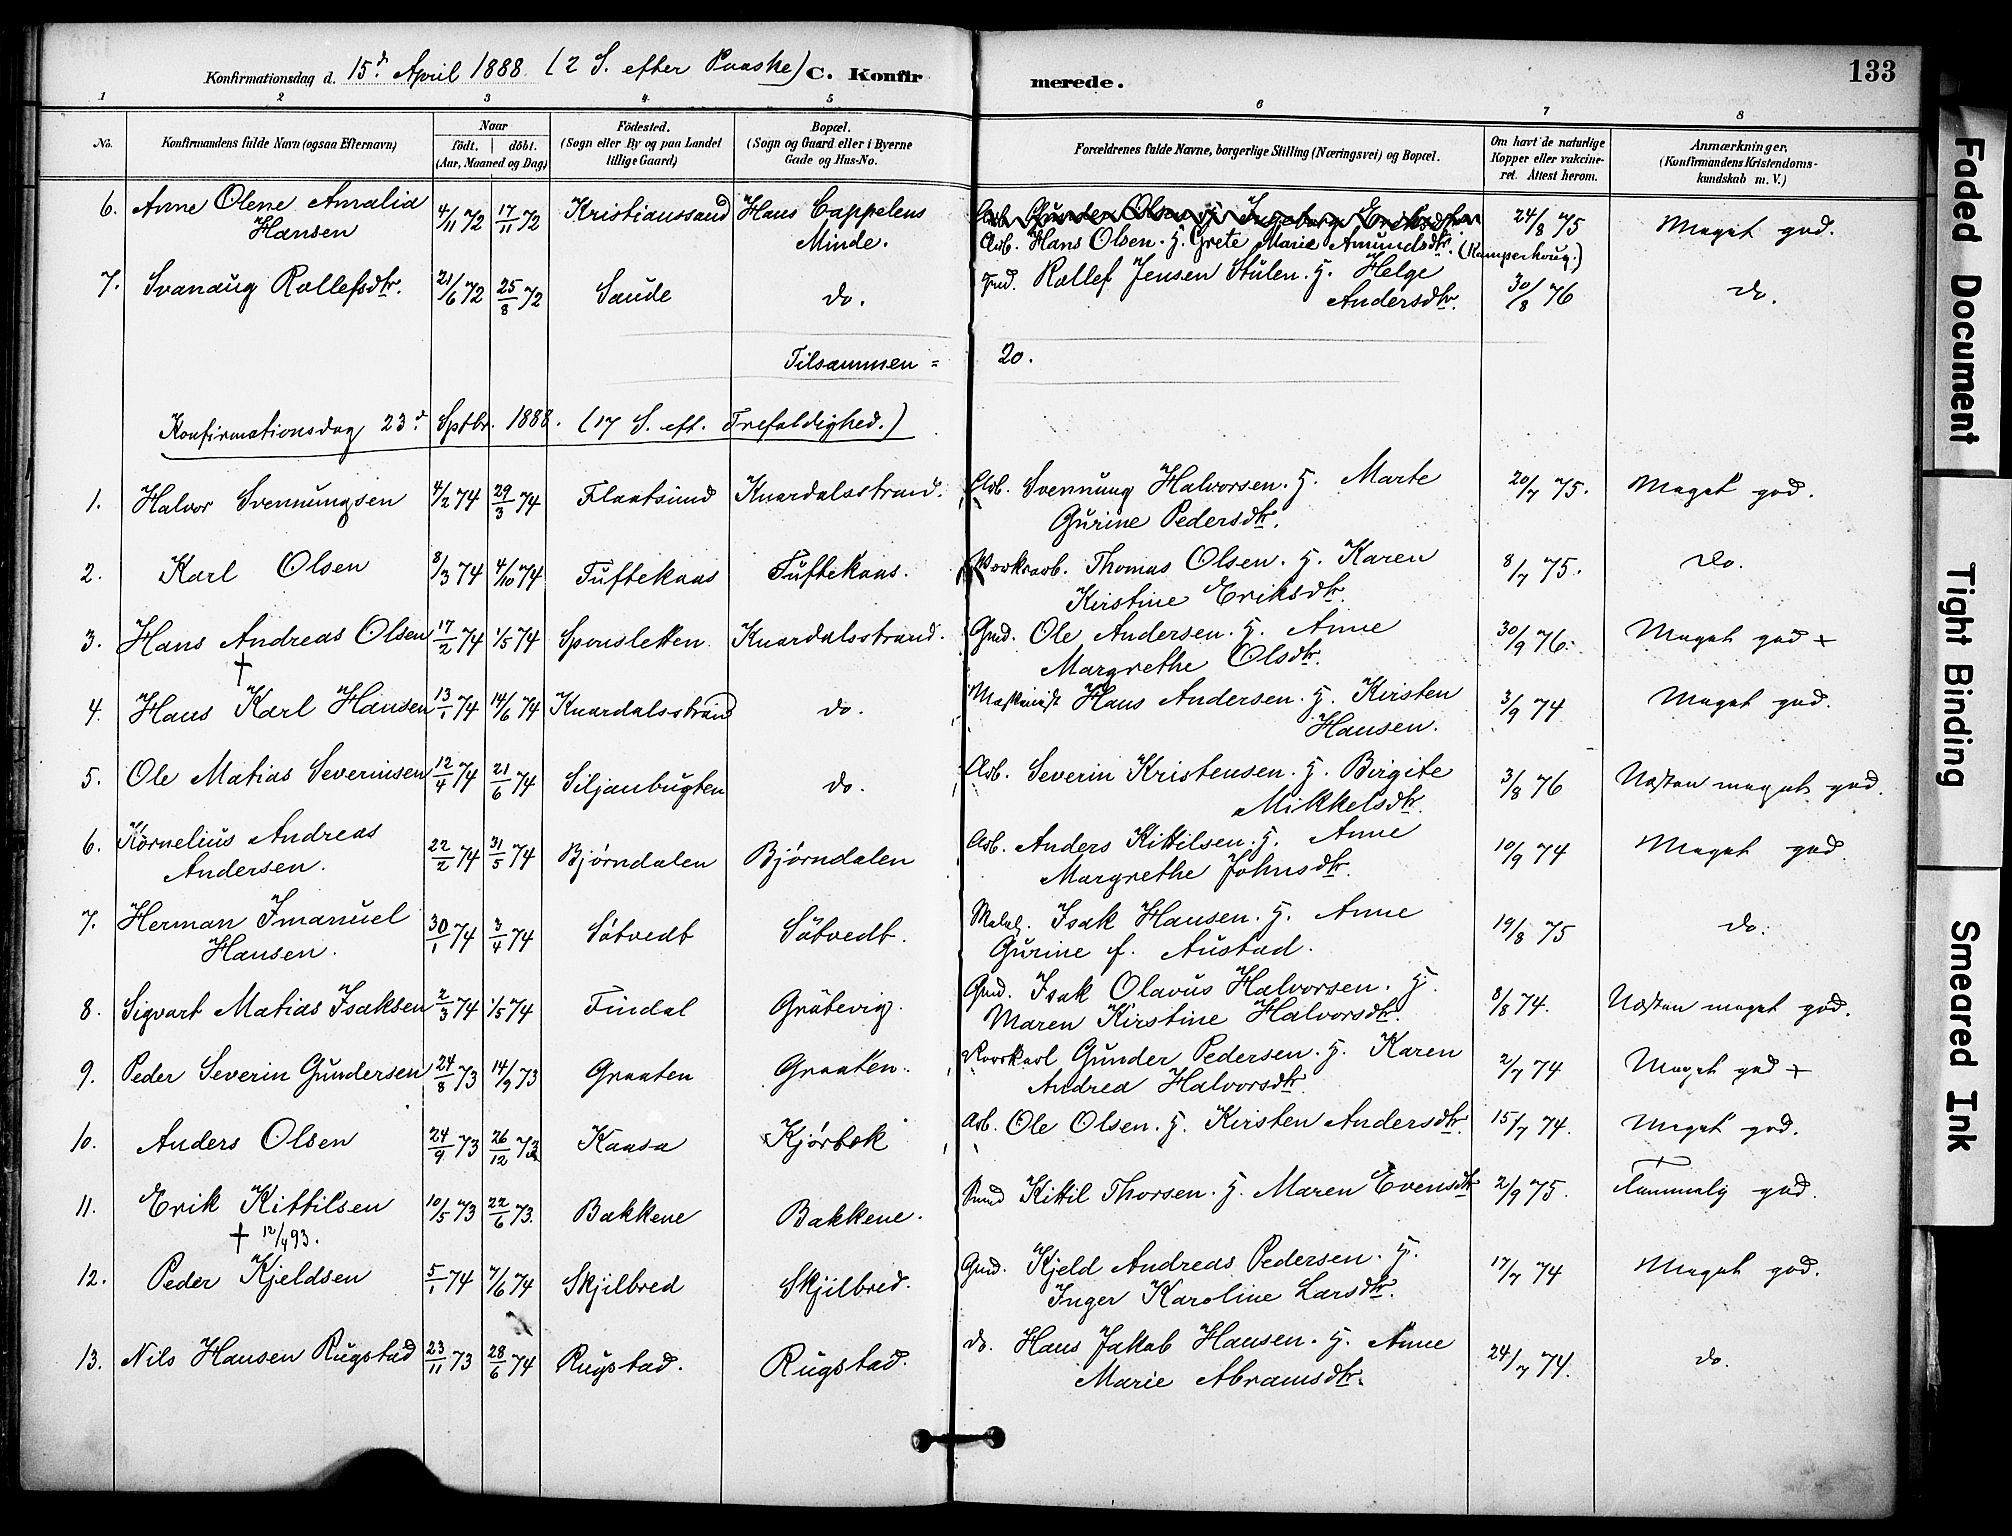 Konfirmationsdag d. 15.d April 1888 (2 S. efter Paaske) C. Konfirmerede. 133
1 2 3 4 5 6 7 8
No. Konfirmandens fulde Navn (ogsaa Efternavn) Naar født. døbt. (Aar, Maaned og Dag) Fødested. (Sogn eller By og paa Landet tillige Gaard) Bopæl. (Sogn og Gaard eller i Byerne Gade og Hus-No.) Forældrenes fulde Navne, borgerlige Stilling (Næringsvei) og Bopæl. Om havt de naturlige Kopper eller vakcineret. Attest herom. Anmærkninger. (Konfirmandens Kristendomskundskab m. V.)
6. Anne Olene Amalia Hansen 4/11 72 17/11 72 Kristianssand Hans Cappelens Minde. Arb. Gunder Olsen. H. Ingeborg Eriksdtr 24/8 75 Meget god.
Arb. Hans Olsen. H. Grete Marie Amundsdtr. (Kamperhaug.)
7. Svanaug Rollefsdtr. 21/6 72 25/8 72 Saude do. Gmd. Rollef Jensen Stulen. H. Helge Andersdtr. 30/8 76 do.
Tilsammen = 20.
Konfirmationsdag 23.d Sptbr. 1888. (17 S. eft. Trefoldighed.)
1. Halvor Svennungsen 4/2 74 29/3 74 Flaatsund Knardalsstrand. Arb. Svennung Halvorsen. H. Marte 20/7 75. Meget god.
Gurine Pedersdtr.
2. Karl Olsen 8/3 74 4/10 74 Tuftekaas Tuftekaas. Værksarb. Thomas Olsen. H. Karen 8/7 75. Do.
Kirstine Eriksdtr.
3. Hans Andreas Olsen 17/2 74 1/5 74 Sponsletten Knardalsstrand. Gmd. Ole Andersen. H. Anne 30/9 76. Meget god +
† Margrethe Olsdtr.
4. Hans Karl Hansen 13/1 74 14/6 74 Knardalsstrand do. Maskinist Hans Andersen. H. Kirsten 3/9 74 Meget god.
Hansen.
5. Ole Matias Severinsen 12/4 74 21/6 74 Siljanbugten do. Arb. Severin Kristensen. H. Birgite 3/8 76 Næsten meget god.
Mikkelsdtr.
6. Kornelius Andreas 22/2 74 31/5 74 Bjørndalen Bjørndalen Arb. Anders Kittilsen. H. Anne 10/9 74 Meget god
Andersen. Margrethe Johnsdtr.
7. Herman Imanuel 30/1 74 3/4 74 Søtvedt Søtvedt. Isak Hansen. H. Anne 19/8 75 do.
Hansen. Gurine f. Austad.
8. Sigvart Matias Isaksen 2/3 74 1/5 74 Findal Gråtevig. Gmd. Isak Olavus Halvorsen. H. 8/8 74. Næsten meget god.
Maren Kirstine Halvorsdtr.
9. Peder Severin Gundersen 24/8 73 14/9 73 Graaten Graaten. Gunder Pedersen. H. Karen 2/7 74 Meget god +
Andrea Halvorsdtr.
10. Anders Olsen 24/9 73 26/12 73 Kaasa Kjørbæk Arb. Ole Olsen. H. Kirsten Andersdtr. 15/7 74. Meget god.
11. Erik Kittilsen 10/5 73 22/6 73. Bakkene Bakkene. Kittil Thorsen. H. Maren Evensdtr 2/9 75. Temmelig god.
† 12/4 93.
12. Peder Kjeldsen 5/1 74 7/6 74 Skjilbred Skjilbred. Gmd. Kjeld Andreas Pedersen. H. 17/7 74 Meget god.
Inger Karoline Larsdtr.
13. Nils Hansen Rugstad 23/11 73 28/6 74 Rugstad. Rugstad. do. Hans Jakob Hansen. H. Anne 24/7 74. do.
Marie Abramsdtr.
Faded Document
Tight Binding
Smeared Ink